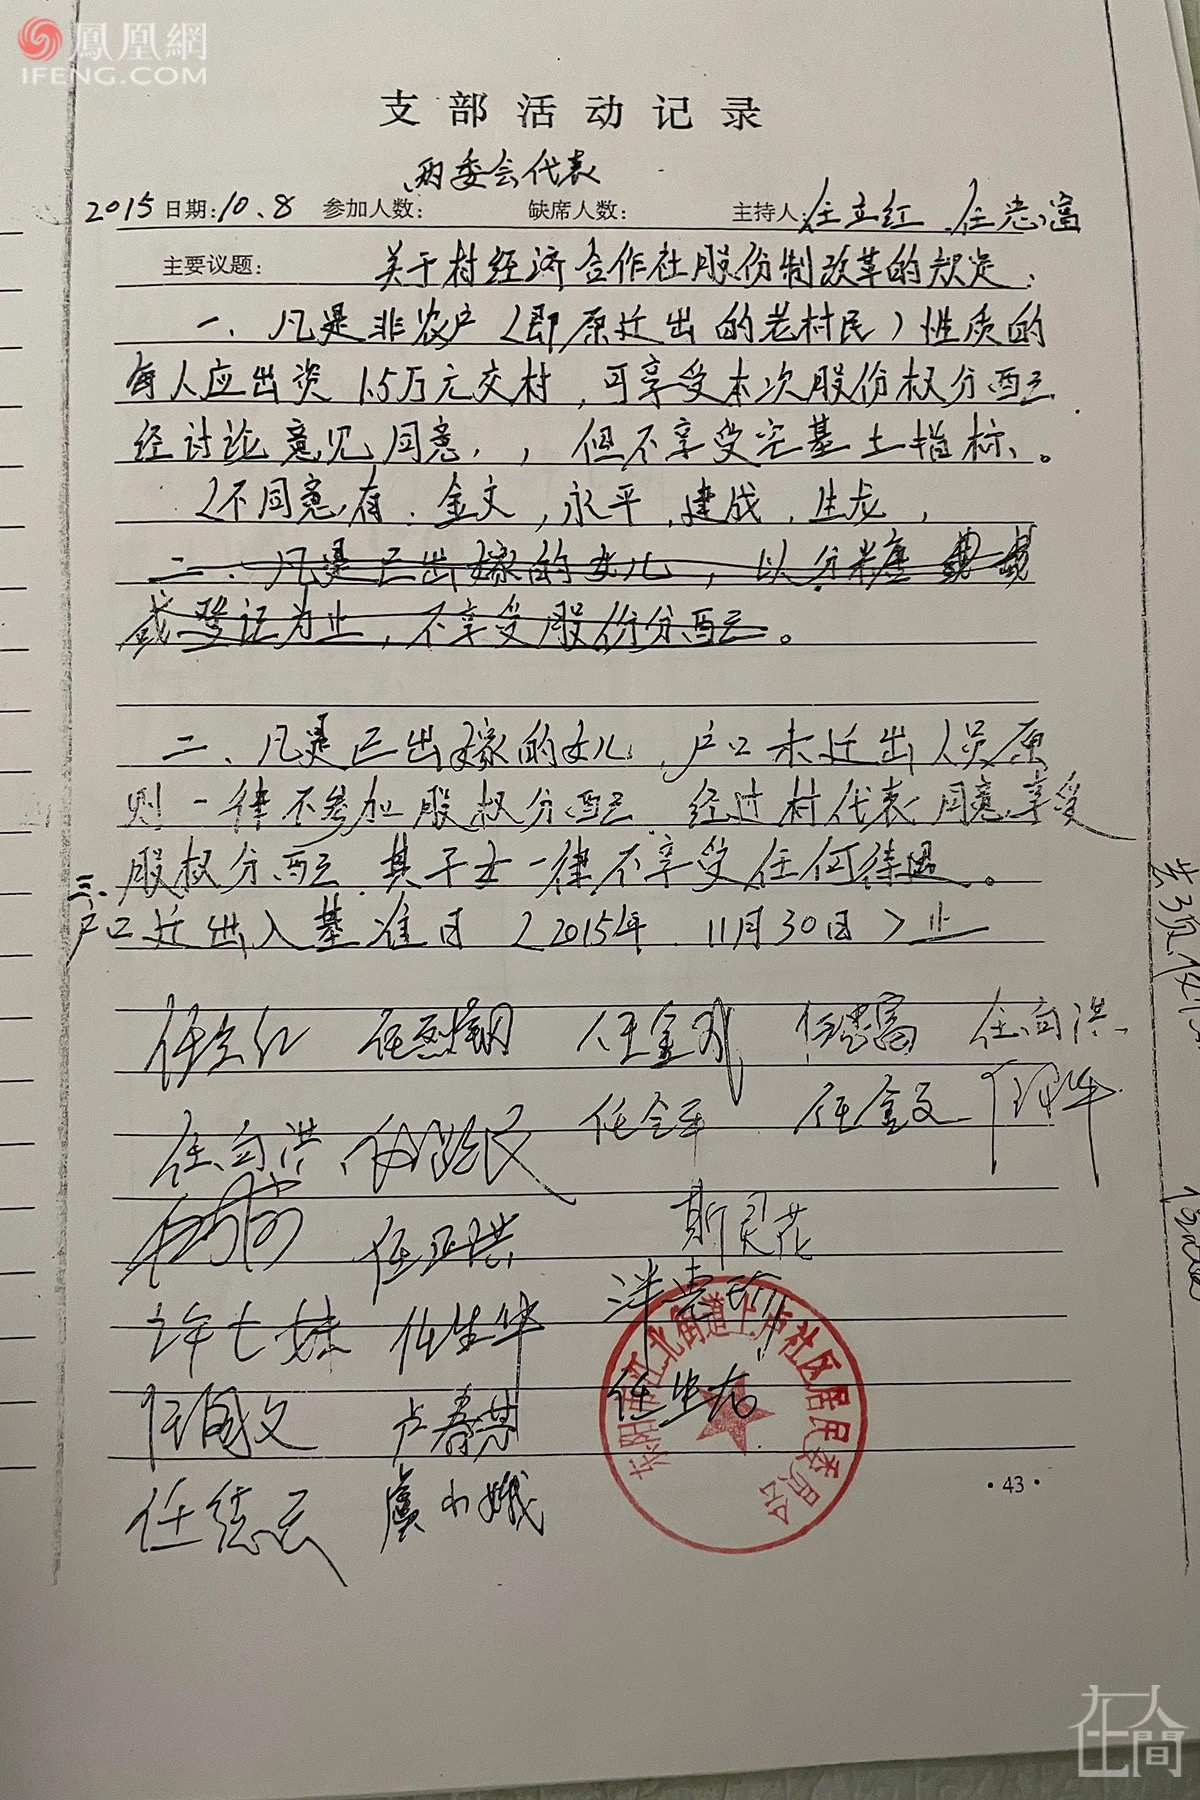 鳳凰網
IFENG.COM
支部活动记录
两委会代表
2015 日期:10.8 参加人数: 缺席人数: 主持人:任立红 任忠富
主要议题: 关于村经济合作社股份制改革的规定:
一、凡是非农户(即原迁出的老村民)性质的
每人应出资1.5万元交村,可享受本次股份权分配
经讨论意见同意,,但不享受宅基土指标。
(不同意有:金文,永平,建成,生龙,
二、凡是已出嫁的女儿,以分米
或登记为止,不享受股份分配。
二、凡是已出嫁的女儿,户口未迁出人员原
则一律不参加股权分配 经过村代表同意享受
股权分配,其子女一律不享受任何待遇。
三、户口迁出入基准日(2015年11月30日)止
任立红 任 任金 任忠富 任向洪
任向洪 民 任金平 任金文 任 华
任 洪 斯灵花
许七妹 任生华 洋
任国文 卢春 任生龙
任德云 虞小娥
东阳市江北街道上卢社区居民委员会
·43·
在人間